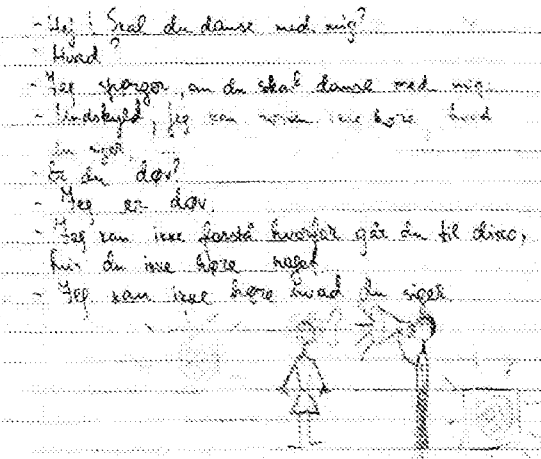 - Hej! Skal du danse med mig?
- Hvad?
- Jeg spørger, om du skal danse med mig.
- Undskyld, jeg kan ikke høre hvad
du siger.
- Er du døv?
- Jeg er døv.
- Jeg kan ikke forstå hvorfor går du til disco,
du ikke høre noget
- Jeg kan ikke høre hvad du siger